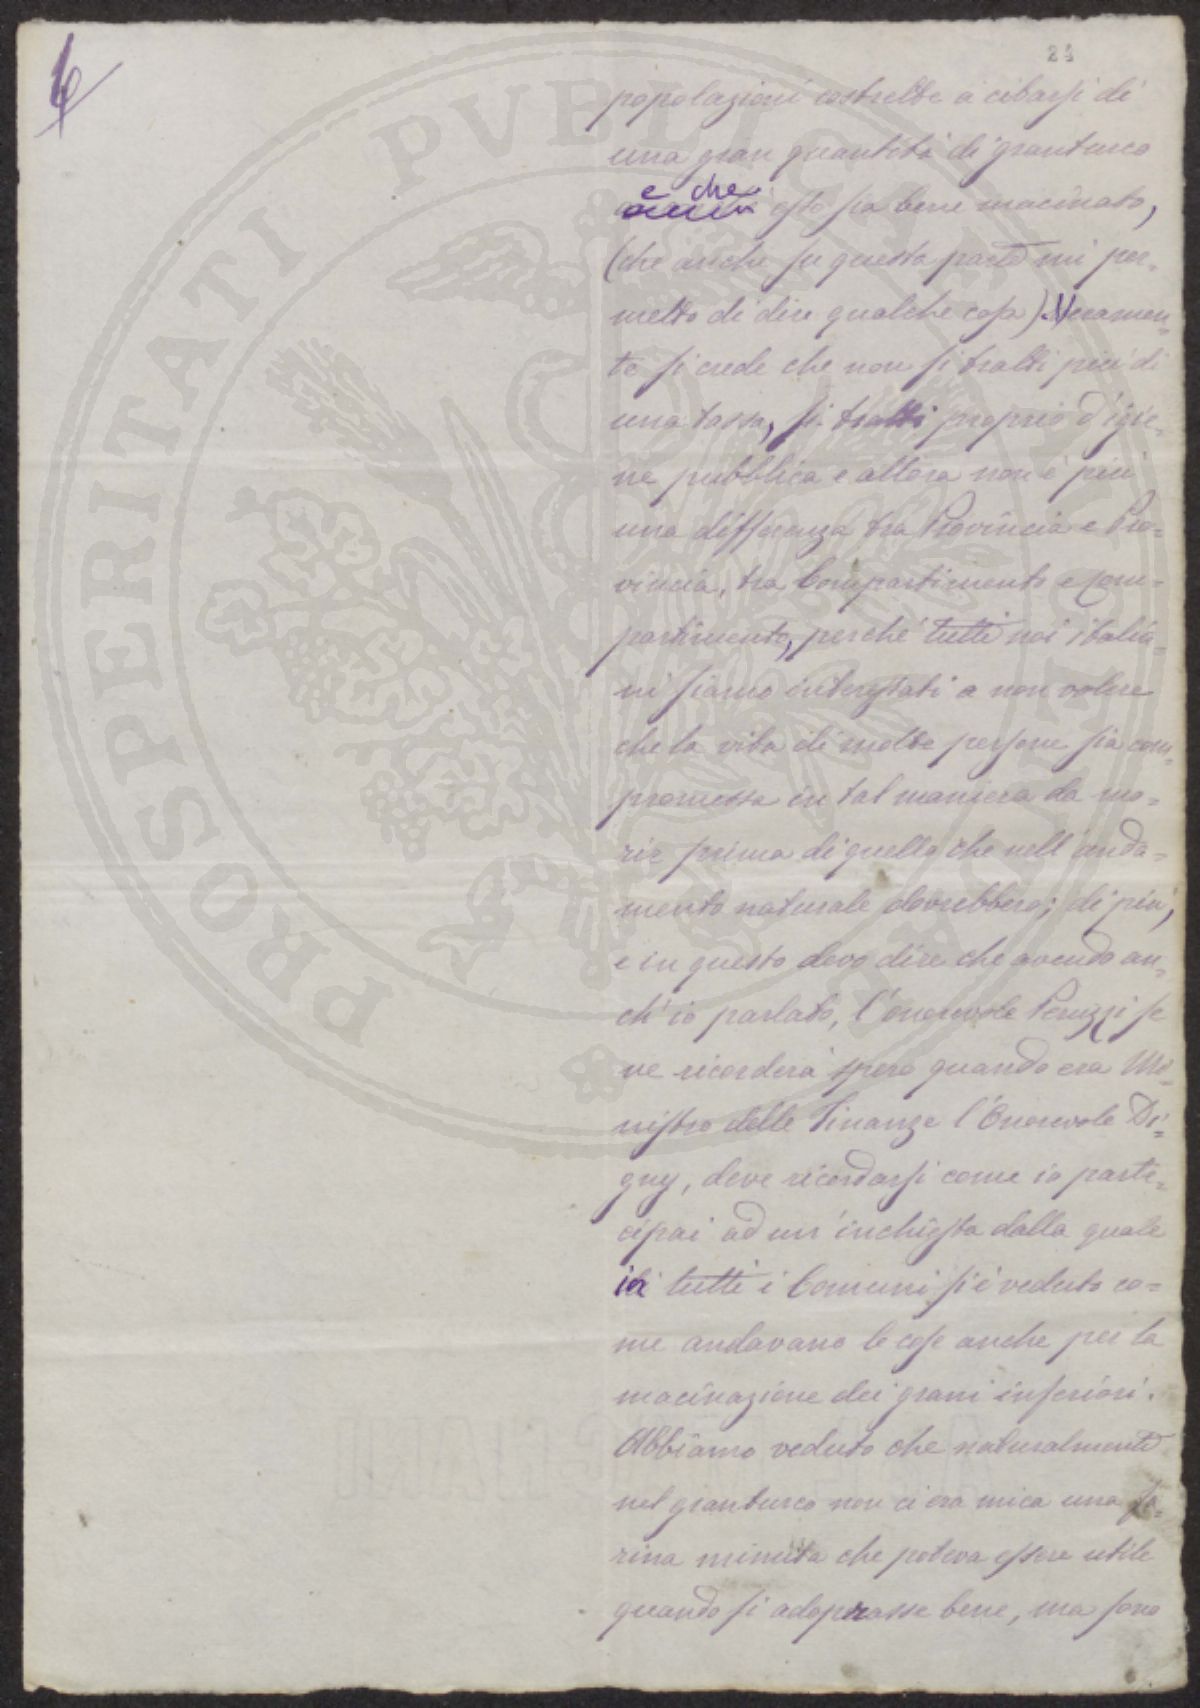 24
popolazioni costrette a cibarsi di
una gran quantità di granturco
e che esso sia bene macinato,
(che anche su questa parte mi per-
metto di dire qualche cosa). Veramen-
te si crede che non si tratti più di
una tassa, si tratti proprio d'igie-
ne pubblica e allora non è più
una differenza tra Provincia e Pro-
vincia, tra Compartimento e Com-
partimento, perché tutti noi italia-
ni siamo interessati a non volere
che la vita di molte persone sia com-
promessa in tal maniera da mo-
rir prima di quello che nell'anda-
mento naturale dovrebbero; di più,
e in questo devo dire che avendo an-
ch'io parlato, l'onorevole Peruzzi se
ne ricorderà spero quando era Mi-
nistro delle Finanze l'Onorevole Di-
gny, deve ricordarsi come io parte-
cipai ad un'inchiesta dalla quale
in tutti i Comuni si è veduto co-
me andavano le cose anche per la
macinazione dei grani inferiori.
Abbiamo veduto che naturalmente
nel granturco non ci era mica una fa-
rina minuta che poteva essere utile
quando si adoprasse bene, ma sono
PROSPERITATI PVBLICAE